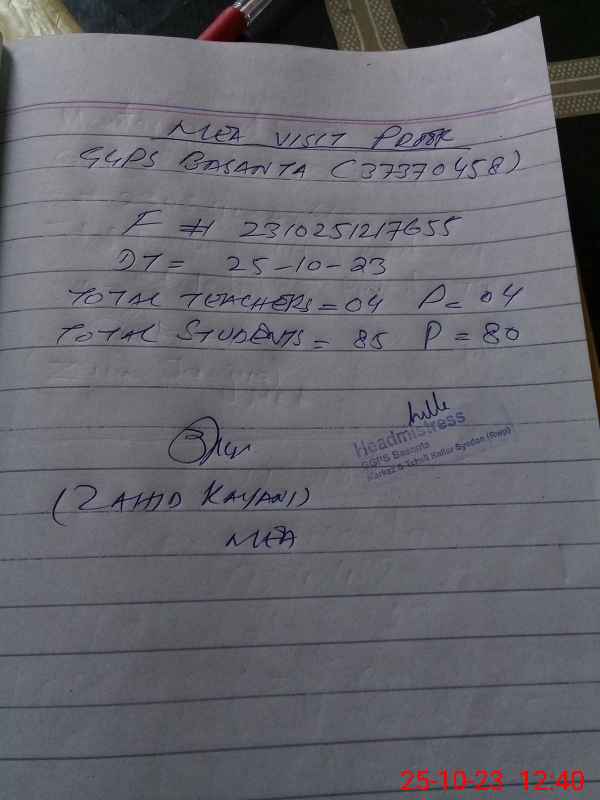 MEA VISIT PROOK
GGPS BASANTA (37370458)
F # 2310251217655
DT = 25-10-23
TOTAL TEACHERS = 04 P = 04
TOTAL STUDENTS = 85 P = 80
Headmistress
GGPS Basanta
Markaz & Tehsil Kallar Syedan (Rwp)
(ZAHID KAYANI)
MEA
25-10-23 12:40